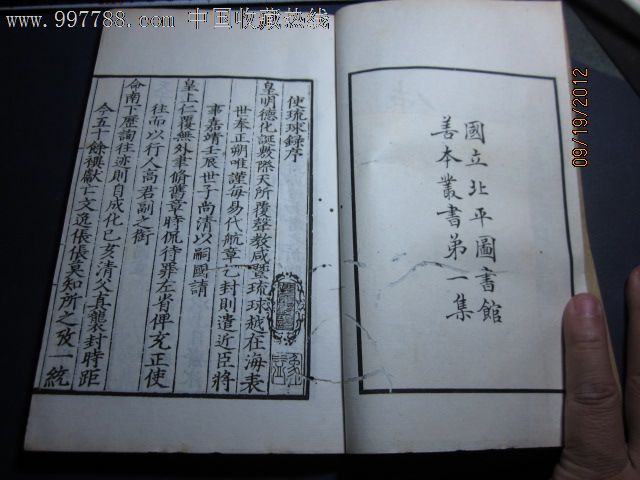 www.997788.com 中国收藏热线
09/19/2012
國立北平圖書館
善本叢書第一集
使琉球錄序
皇明德化誕敷際天所覆聲教咸曁琉球越在海表
世奉正朔唯謹每易代航章乞封則遣近臣將
事嘉靖壬辰世子尚清以嗣國請
皇上仁覆無外聿脩舊章時侃待罪左省俾充正使
往而以行人高君副之銜
命南下歷詢往迹則自成化己亥清父真襲封時距
今五十餘禩獻亡文逸倀倀莫知所之攷一統